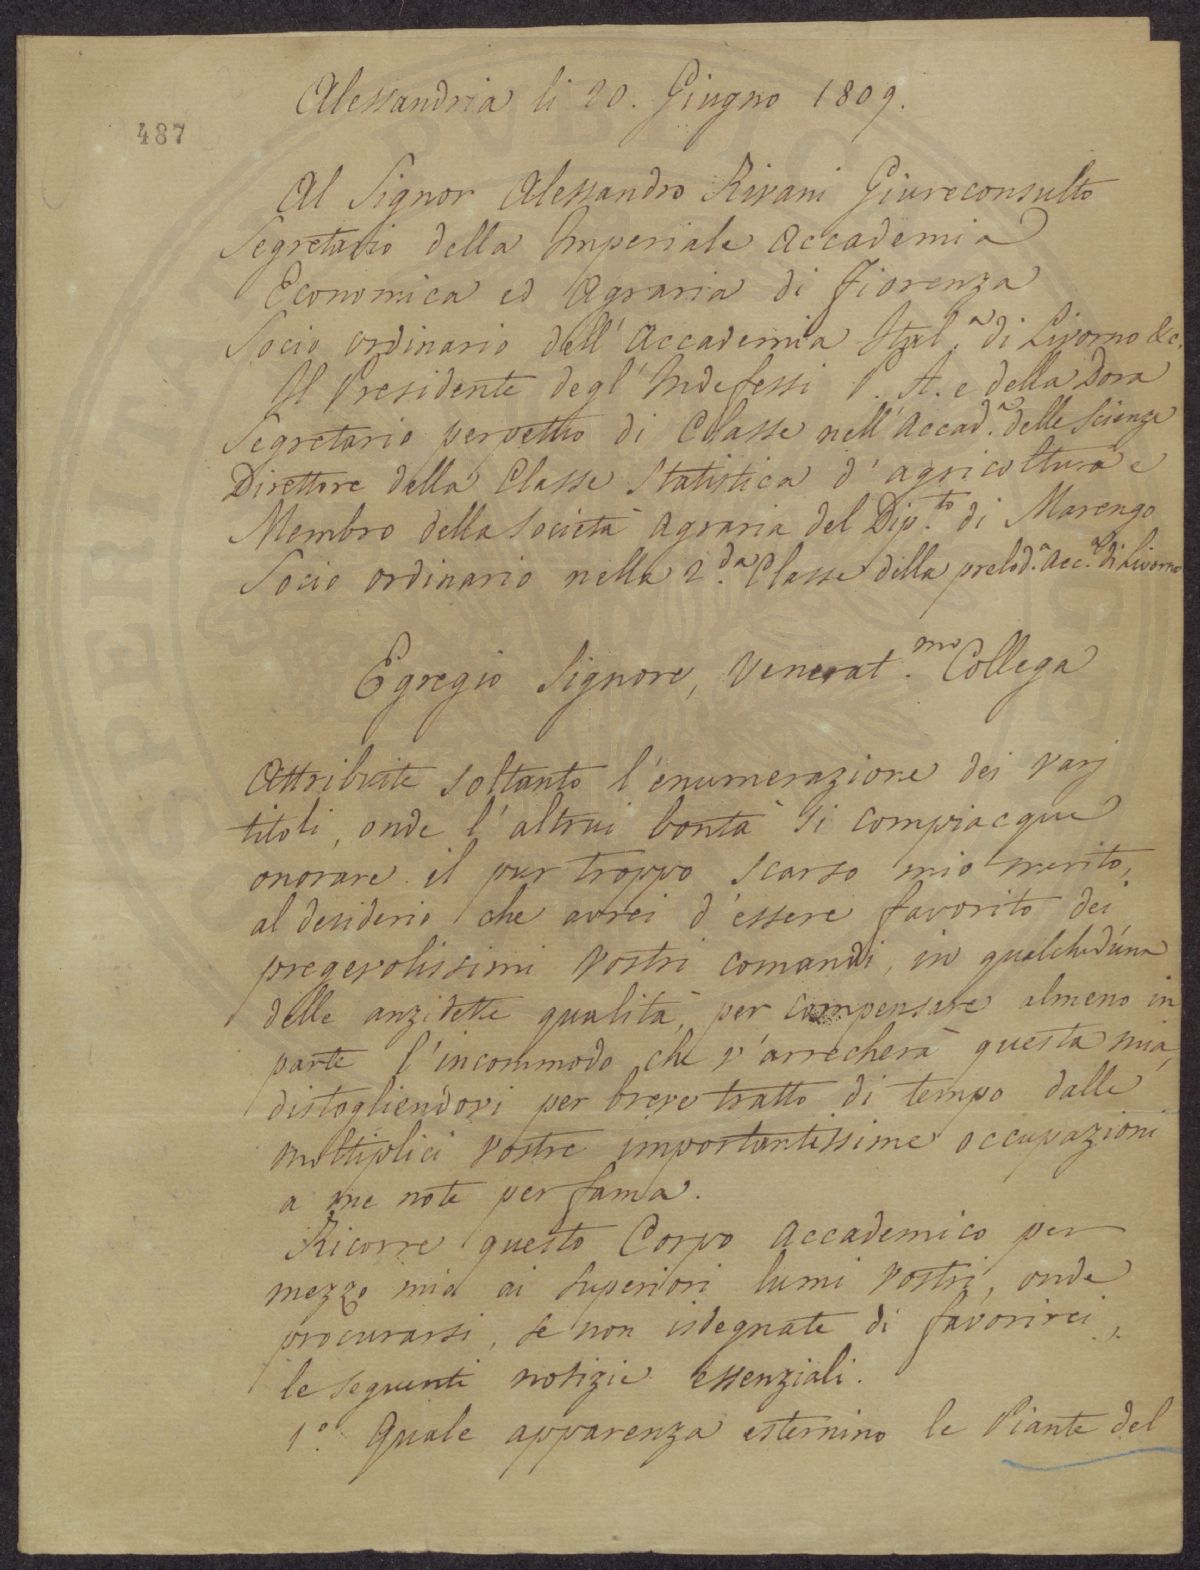 Alessandria li 20. Giugno 1809.
487
Al Signor Alessandro Rivani Giureconsulto
Segretario della Imperiale Accademia
Economica ed Agraria di Fiorenza
Socio ordinario dell' Accademia Ital.a di Livorno &c.
Il Presidente degl' Indefessi P. A. e della Dora
Segretario perpetuo di Classe nell' Accad.a delle Scienze
Direttore della Classe Statistica d' agricoltura e
Membro della Società Agraria del Dip.to di Marengo
Socio ordinario nella 2.da Classe della prelod.a Acc.a di Livorno
Egregio Signore, Venerat.mo Collega
Attribuite soltanto l'enumerazione dei varj
titoli, onde l'altrui bontà si compiacque
onorare il pur troppo scarso mio merito,
al desiderio che avrei d'essere favorito dei
pregevolissimi vostri comandi, in qualched'una
delle anzidette qualità, per compensare almeno in
parte l'incommodo che v'arrecherà questa mia,
distogliendovi per breve tratto di tempo dalle
moltiplici vostre importantissime occupazioni
a me note per fama.
Ricorre questo Corpo Accademico per
mezzo mio ai superiori lumi vostri, onde
procurarsi, se non isdegnate di favorirci,
le seguenti notizie essenziali.
1.° Quale apparenza esternino le Piante del